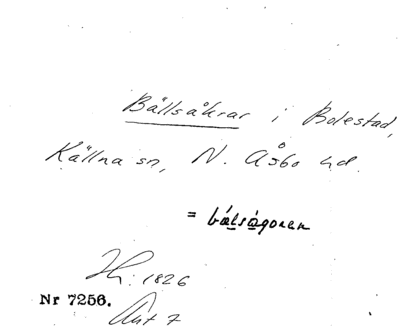 Bållsåkrar i Bolestad,
Källna sn, N. Åsbo hd.
= bålsågoren
1826
Nr 7256.
Akt 7